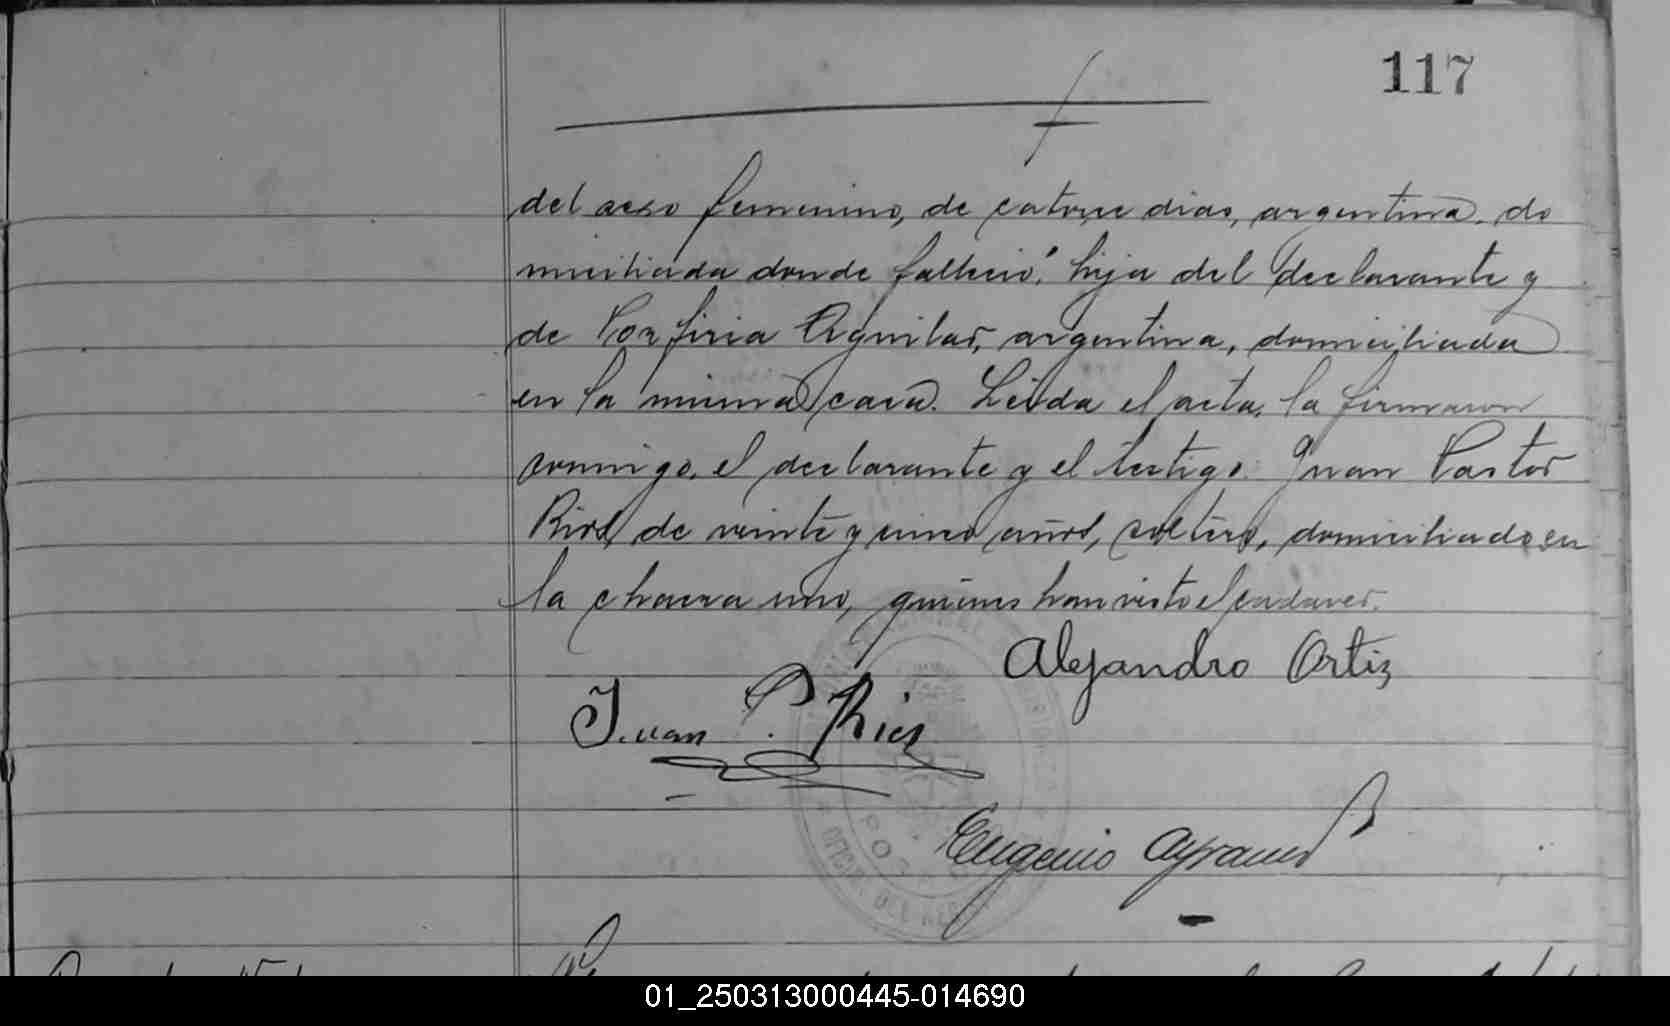 117
del sexo femenino, de catorce dias, argentina, do
miciliada donde falleció: hija del declarante y
de Porfiria Aguilar, argentina, domiciliada
en la misma casa. Leida el acta, la firmaron
conmigo, el declarante y el testigo. Juan Pastor
Rios, de veinte y cinco años, soltero, domiciliado en
la chacra uno, quienes han visto el cadaver.
Alejandro Ortiz
Juan P. Rios
Eugenio
01_250313000445-014690